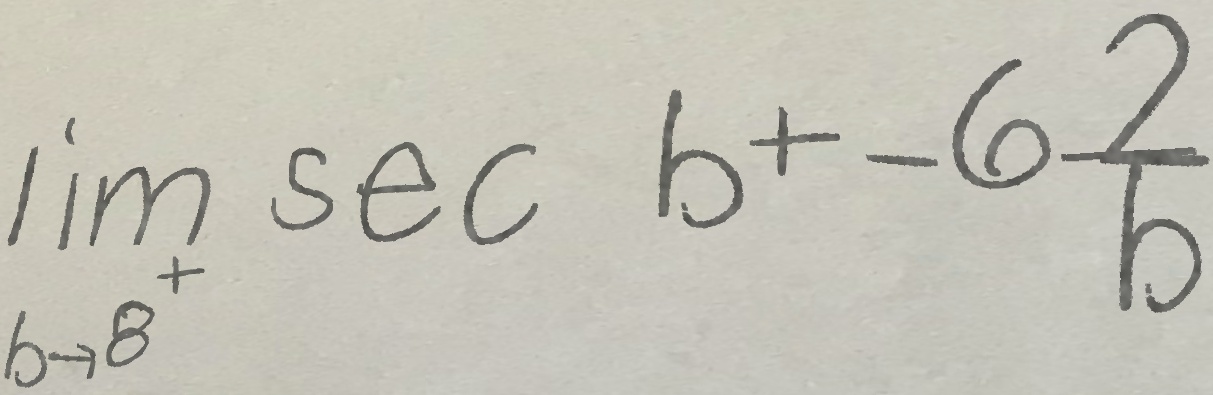 lim_{b→8^+} sec b + -6 \frac{2}{b}